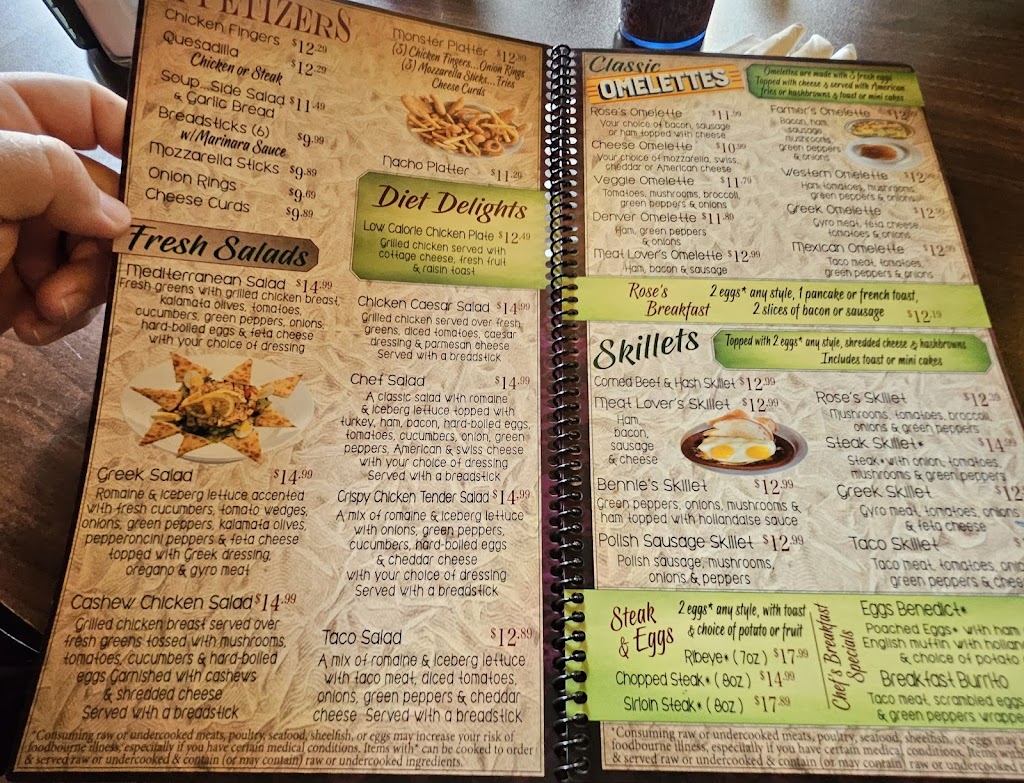 APPETIZERS
Chicken Fingers $12.29
Quesadilla $12.29
Chicken or Steak
Soup...Side Salad $11.49
& Garlic Bread
Breadsticks (6) $9.99
w/Marinara Sauce
Mozzarella Sticks $9.89
Onion Rings $9.69
Cheese Curds $9.89
Monster Platter $12.99
(3) Chicken Fingers...Onion Rings
(3) Mozzarella Sticks...Fries
Cheese Curds
Nacho Platter $11.29
Diet Delights
Low Calorie Chicken Plate $12.49
Grilled chicken served with
cottage cheese, fresh fruit
& raisin toast
Fresh Salads
Mediterranean Salad $14.99
Fresh greens with grilled chicken breast,
kalamata olives, tomatoes,
cucumbers, green peppers, onions,
hard-boiled eggs & feta cheese
with your choice of dressing
Greek Salad $14.99
Romaine & iceberg lettuce accented
with fresh cucumbers, tomato wedges,
onions, green peppers, kalamata olives,
pepperoncini peppers & feta cheese
topped with Greek dressing,
oregano & gyro meat
Cashew Chicken Salad $14.99
Grilled chicken breast served over
fresh greens tossed with mushrooms,
tomatoes, cucumbers & hard-boiled
eggs Garnished with cashews
& shredded cheese
Served with a breadstick
Chicken Caesar Salad $14.99
Grilled chicken served over fresh
greens, diced tomatoes, caesar
dressing & parmesan cheese
Served with a breadstick
Chef Salad $14.99
A classic salad with romaine
& iceberg lettuce topped with
turkey, ham, bacon, hard-boiled eggs,
tomatoes, cucumbers, onion, green
peppers, American & swiss cheese
with your choice of dressing
Served with a breadstick
Crispy Chicken Tender Salad $14.99
A mix of romaine & iceberg lettuce
with onions, green peppers,
cucumbers, hard-boiled eggs
& cheddar cheese
with your choice of dressing
Served with a breadstick
Taco Salad $12.89
A mix of romaine & iceberg lettuce
with taco meat, diced tomatoes,
onions, green peppers & cheddar
cheese Served with a breadstick
*Consuming raw or undercooked meats, poultry, seafood, shellfish, or eggs may increase your risk of
foodbourne illness, especially if you have certain medical conditions. Items with* can be cooked to order
& served raw or undercooked & contain (or may contain) raw or undercooked ingredients.
Classic
OMELETTES
Omelettes are made with 3 fresh eggs
Topped with cheese & served with American
fries or hashbrowns & toast or mini cakes
Rose's Omelette $11.99
Your choice of bacon, sausage
or ham topped with cheese
Cheese Omelette $10.99
Your choice of mozzarella, swiss,
cheddar or American cheese
Veggie Omelette $11.79
Tomatoes, mushrooms, broccoli,
green peppers & onions
Denver Omelette $11.89
Ham, green peppers
& onions
Meat Lover's Omelette $12.99
Ham, bacon & sausage
Farmer's Omelette
Bacon, ham,
sausage
mushrooms,
green peppers
& onions
Western Omelette
Ham, tomatoes, mushrooms,
green peppers & onions
Greek Omelette
Gyro meat, feta cheese,
tomatoes & onions
Mexican Omelette
Taco meat, tomatoes,
green peppers & onions
Rose's
Breakfast
2 eggs* any style, 1 pancake or french toast,
2 slices of bacon or sausage $12.19
Skillets
Topped with 2 eggs* any style, shredded cheese & hashbrowns
Includes toast or mini cakes
Corned Beef & Hash Skillet $12.99
Meat Lover's Skillet $12.99
Ham,
bacon,
sausage
& cheese
Bennie's Skillet $12.99
Green peppers, onions, mushrooms &
ham topped with hollandaise sauce
Polish Sausage Skillet $12.99
Polish sausage, mushrooms,
onions & peppers
Rose's Skillet
Mushrooms, tomatoes, broccoli,
onions & green peppers
Steak Skillet*
Steak* with onion, tomatoes,
mushrooms & green peppers
Greek Skillet
Gyro meat, tomatoes, onions
& feta cheese
Taco Skillet
Taco meat, tomatoes,
green peppers &
Steak
& Eggs
2 eggs* any style, with toast
& choice of potato or fruit
Ribeye* (7oz) $17.99
Chopped Steak* (8oz) $14.99
Sirloin Steak* (8oz) $17.89
Chef's Breakfast
Specials
Eggs Benedict*
Poached Eggs* with ham
English muffin with
& choice of potato
Breakfast Burrito
Taco meat, scrambled eggs
& green peppers
*Consuming raw or undercooked meats, poultry, seafood, shellfish, or eggs may
foodbourne illness, especially if you have certain medical conditions. Items
& served raw or undercooked & contain (or may contain) raw or undercooked